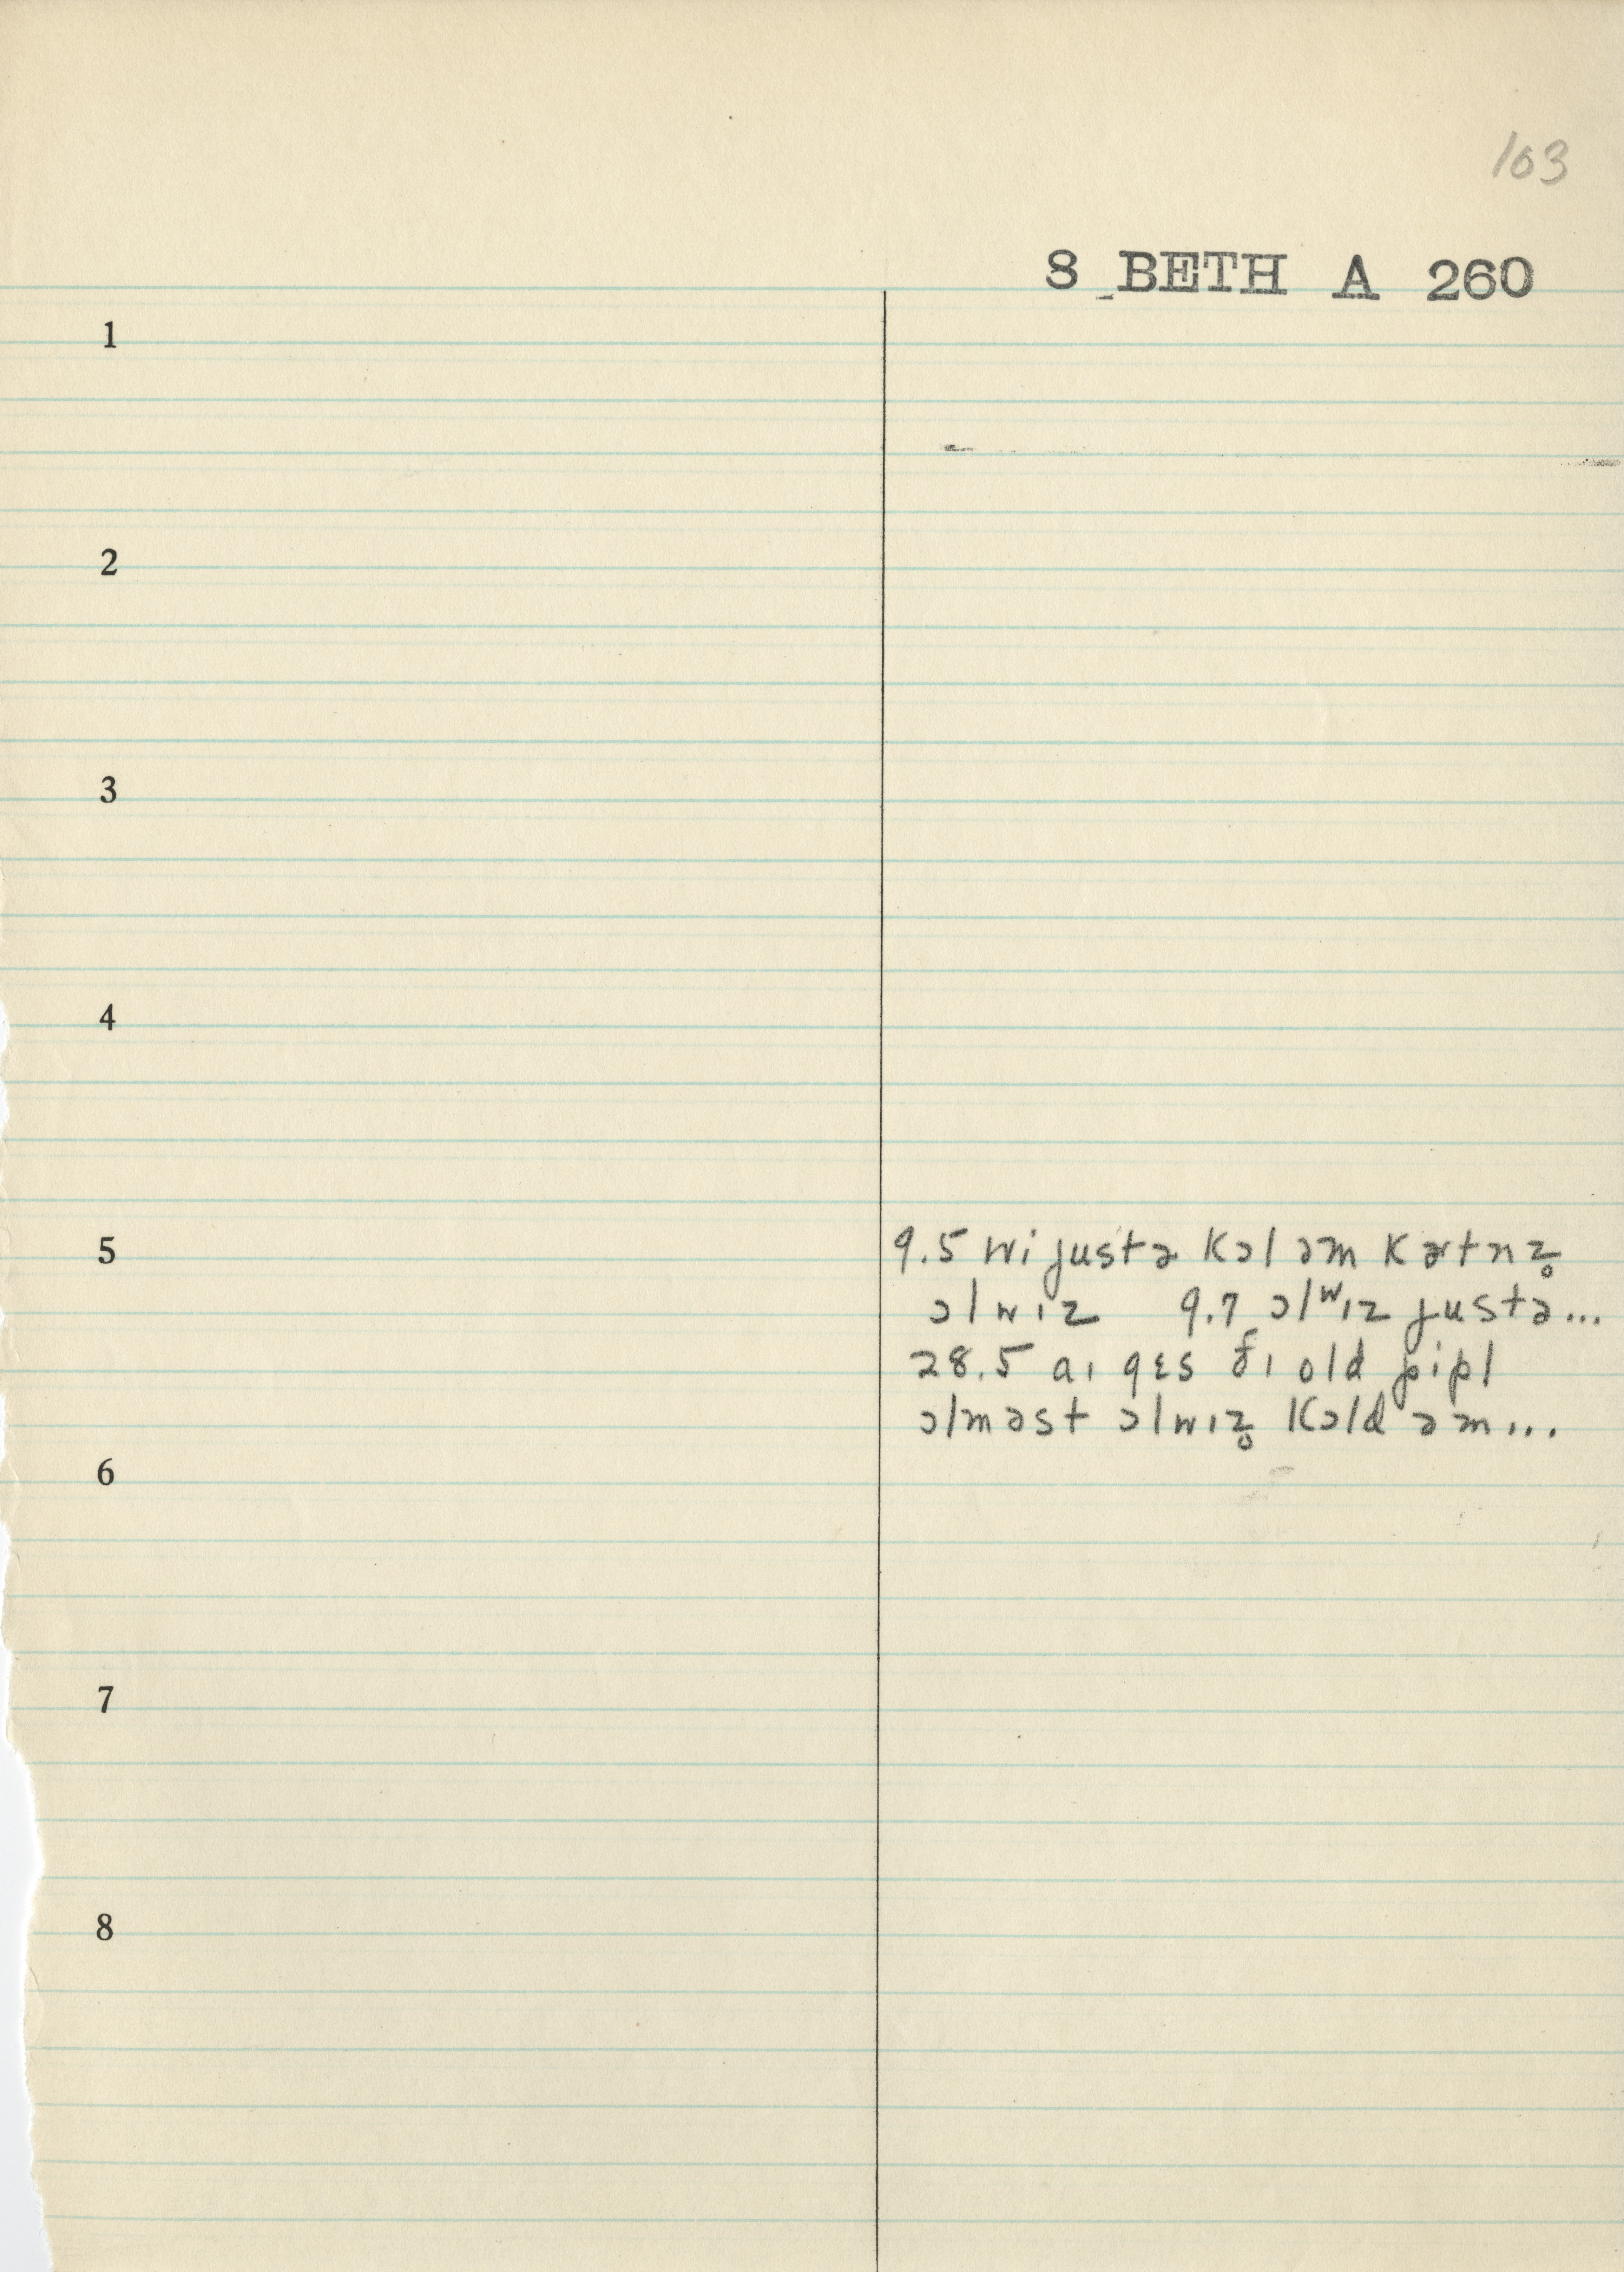 103
8 BETH A 260
1
2
3
4
5 9.5 wi justə kɔl əm kɚtn̩z̥
ɔlwɪz 9.7 ɔlwɪz justə...
28.5 aɪ gɛs ðɪ old pipl
ɔlməst ɔlwɪz̥ kɔld əm...
6
7
8